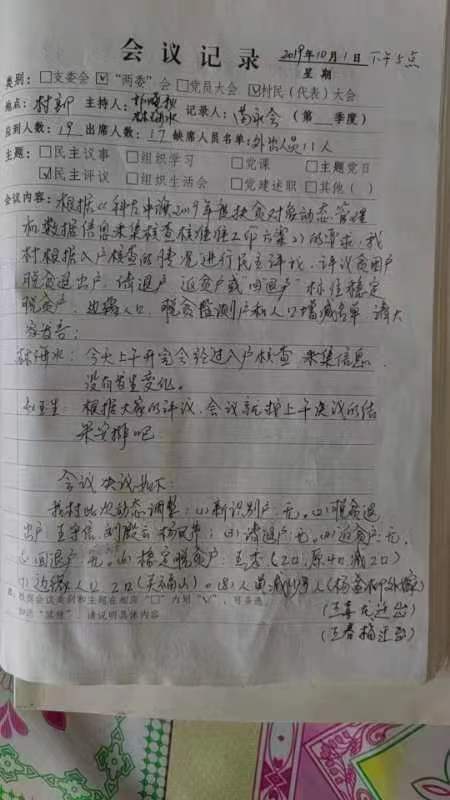 会议记录 2019年10月1日 下午5点
星期
类别：□支委会 ☑“两委”会 □党员大会 ☑村民（代表）大会
地点：村部 主持人： 记录人： （第 季度）
应到人数：19 出席人数：17 缺席人员名单：外出人员11人
主题：□民主议事 □组织学习 □党课 □主题党日
☑民主评议 □组织生活会 □党建述职 □其他（ ）
会议内容：根据《 2019年度扶贫对象动态管理
和数据信息采集核查核准 工作方案》的要求，我
村根据入户核查的情况进行民主评议，评议贫困户
脱贫退出户，清退户，返贫户或回退户，标注稳定
脱贫户，边缘人口，脱贫监测户和人口增减名单，请大
家发言：
今天上午开完会经过入户核查 采集信息
没有发生变化。
根据大家的评议，会议就按上午决议的结
果安排吧
会议决议如下：
我村此次动态调整：(1)新识别户：无。(2)脱贫退
出户：王守信， (3)清退户：无。(4)返贫户：无。
(5)回退户：无。(6)稳定脱贫户： （2口，原4口减2口）
(7)边缘人口 2口 。(8)人
注：根据会议类别和主题在相应“□”内划“√”，可多选，
如选“其他”，请说明具体内容